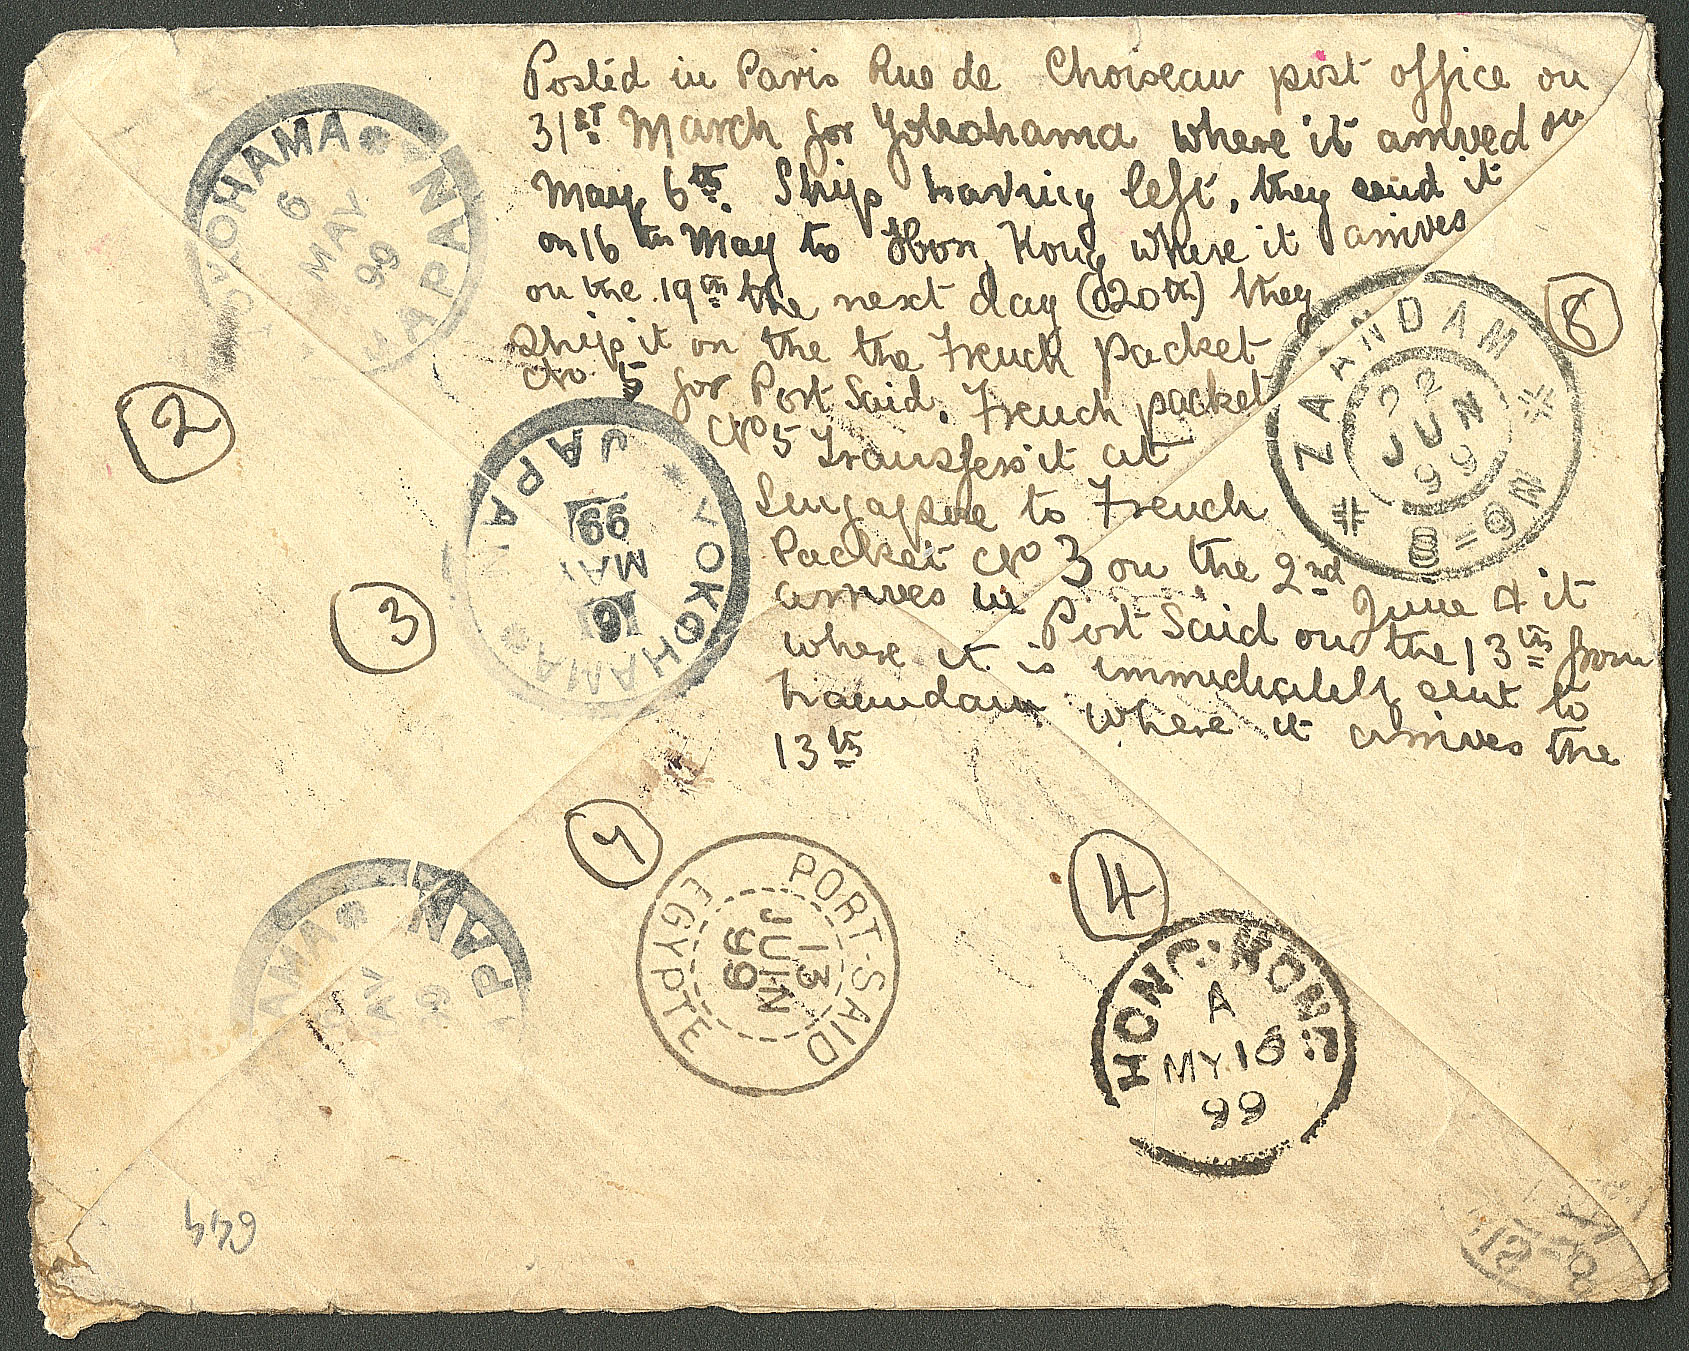 Posted in Paris Rue de Choiseau post office on
31ST March for Yokohama where it arrived on
May 6th. Ship having left, they send it
on 16th May to Hon Kong where it arrives
on the 19th the next day (20th) they
Ship it on the the French packet
No 5 for Port Said. French packet
No 5 Transfers it at
Singapore to French
Packet No 3 on the 2nd June & it
arrives in Port Said on the 13th from
where it is immediately sent to
where it arrives the
13th
YOKOHAMA JAPAN
6
MAY
99
2
YOKOHAMA JAPAN
16
MAY
99
3
ZAANDAM
22
JUN
99
8=9N
8
AMA PAN
AY
7
PORT-SAID
EGYPTE
13
JUIN
99
4
HONG KONG
A
MY
99